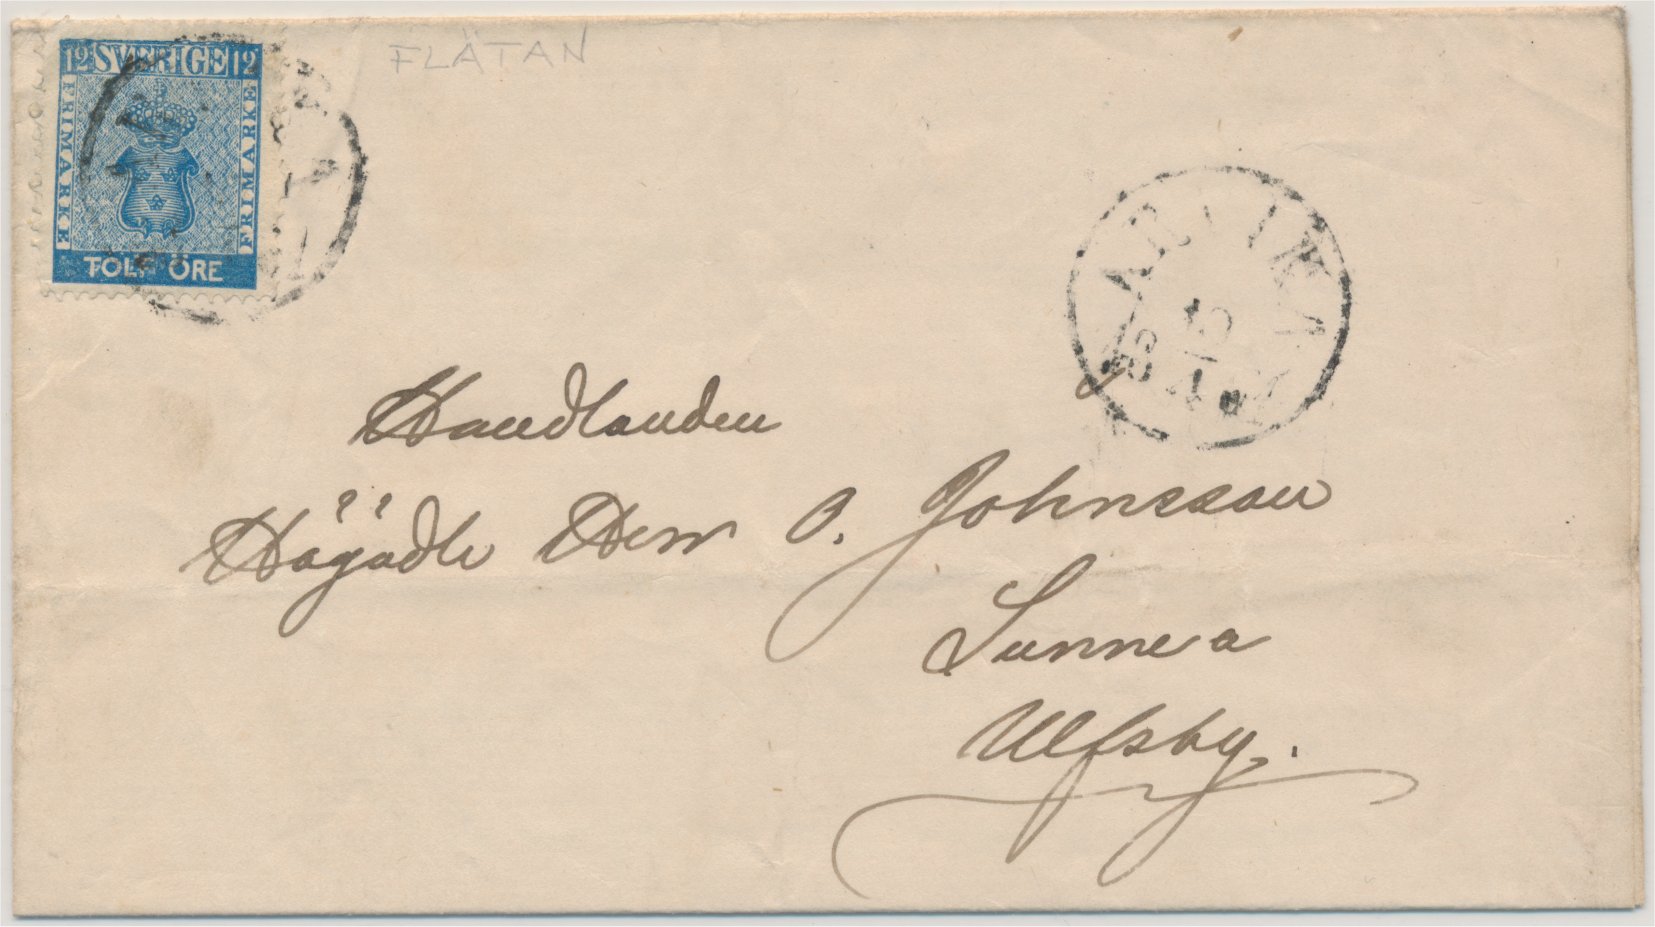 12 SVERIGE 12
FRIMÄRKE
FRIMÄRKE
TOLF ÖRE
FLÄTAN
ARVIKA
10
4
Handlanden
Högädle Herr O. Johnsson
Sunne a
Ulfsby.